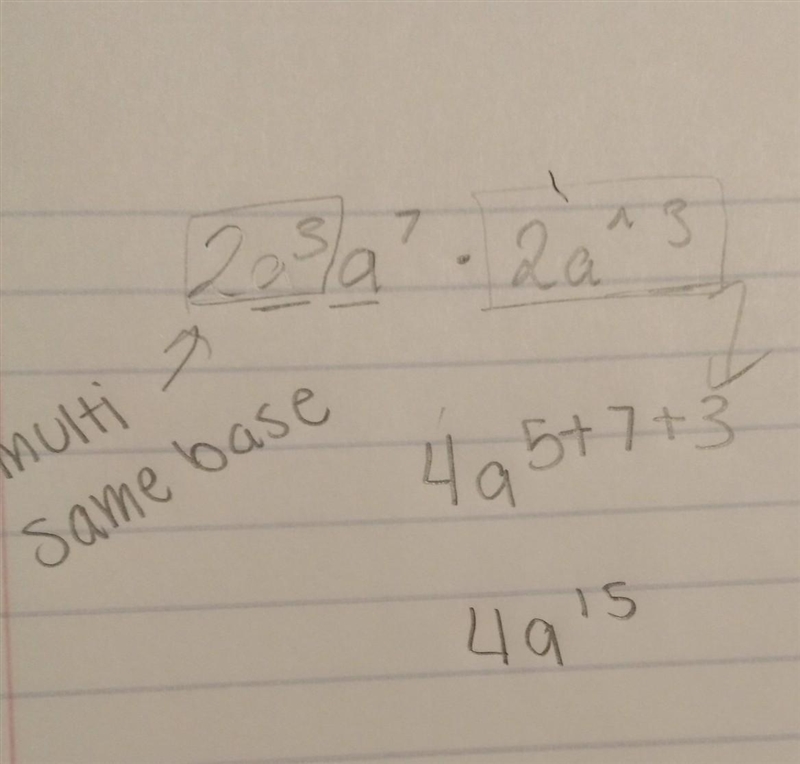 2a⁵a⁷ · 2a^3
multi
same base
4a⁵⁺⁷⁺³
4a¹⁵